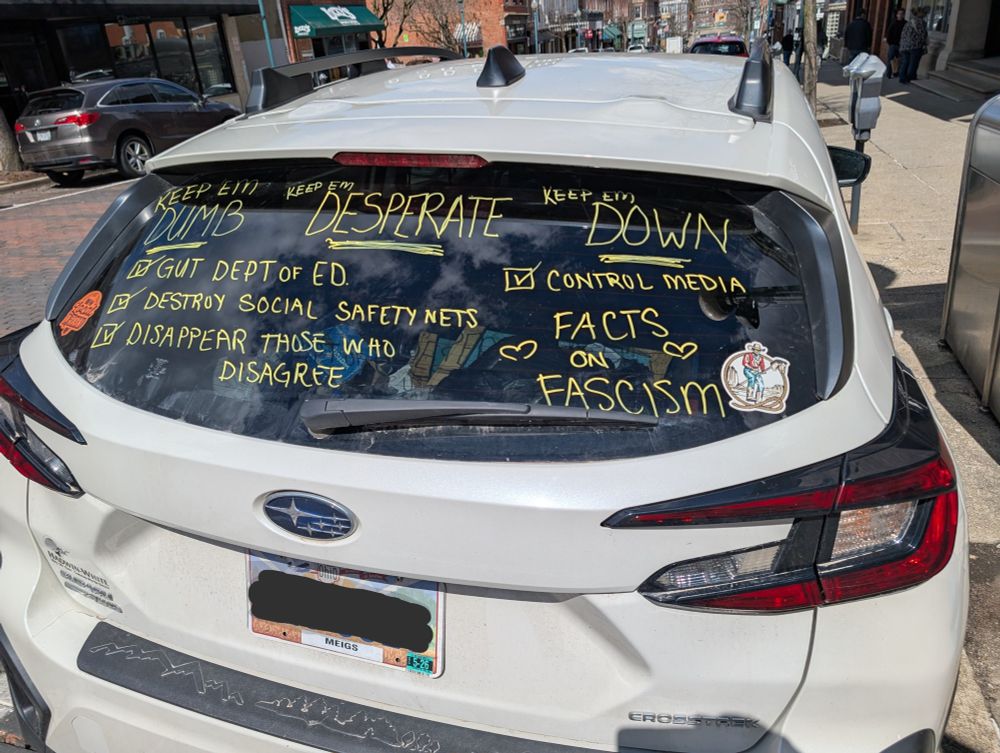 KEEP EM
DUMB
KEEP EM
DESPERATE
KEEP EM
DOWN
GUT DEPT OF ED.
DESTROY SOCIAL SAFETY NETS
DISAPPEAR THOSE WHO
DISAGREE
CONTROL MEDIA
FACTS
ON
FASCISM
Ohio
MEIGS
5-26
CROSSTREK